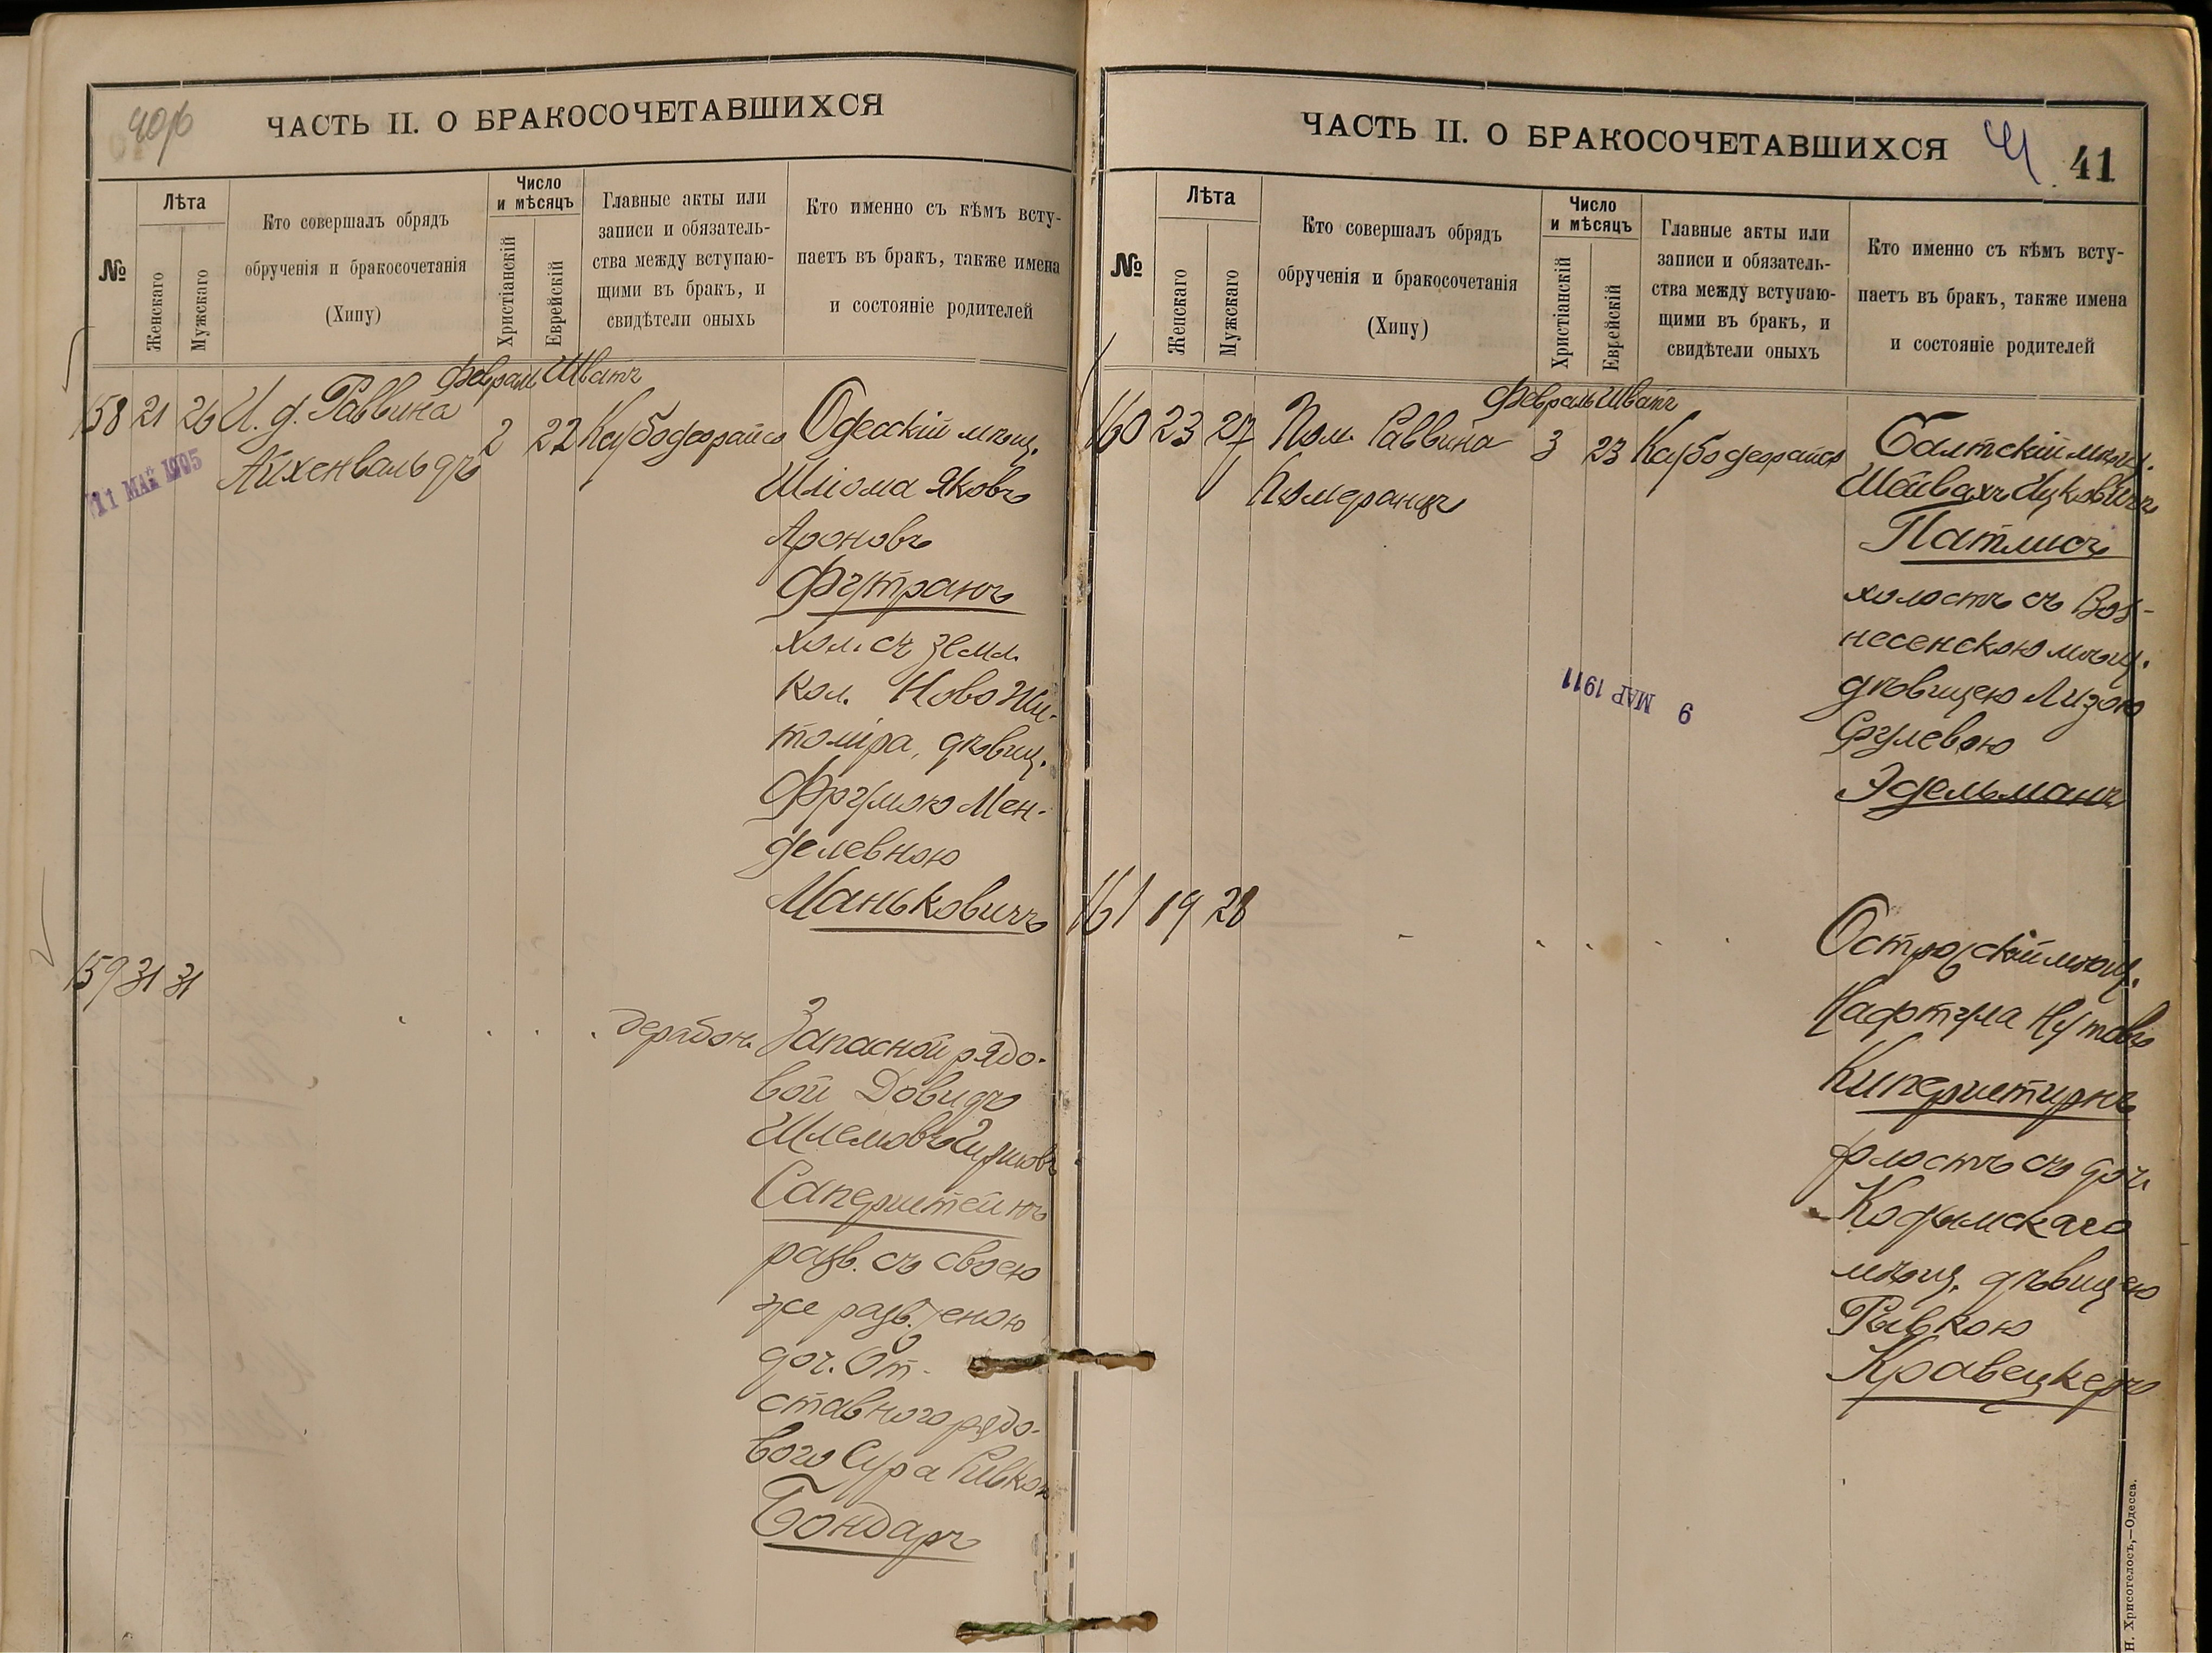 40об
ЧАСТЬ II. О БРАКОСОЧЕТАВШИХСЯ
№
Лѣта
Женскаго
Мужскаго
Кто совершалъ обрядъ
обрученія и бракосочетанія
(Хипу)
Число
и мѣсяцъ
Христіанскій
Еврейскій
Главные акты или
записи и обязатель-
ства между вступаю-
щими въ бракъ, и
свидѣтели оныхъ
Кто именно съ кѣмъ всту-
паетъ въ бракъ, также имена
и состояніе родителей
Февраль Шватъ
158 21 26 И. д. Раввина 2 22 Каубодерайса Одесскій мѣщ.
Айхенвальдъ
11 МАЙ 1905
Шлiома Яковъ
Ароновъ
Футранъ
хол. съ земл.
кол. Ново Жи-
томіра, дѣвиц.
Фрумою Мен-
делевною
Маньковичъ
159 31 31
дерабон. Запасной рядо-
вой Довидъ
Шлемовъ
Саперштейнъ
разв. съ своею
же разв. женою
доч. От-
ставного рядо-
вого Сура Ривкою
Бондаръ
ЧАСТЬ II. О БРАКОСОЧЕТАВШИХСЯ
41
41
№
Лѣта
Женскаго
Мужскаго
Кто совершалъ обрядъ
обрученія и бракосочетанія
(Хипу)
Число
и мѣсяцъ
Христіанскій
Еврейскій
Главные акты или
записи и обязатель-
ства между вступаю-
щими въ бракъ, и
свидѣтели оныхъ
Кто именно съ кѣмъ всту-
паетъ въ бракъ, также имена
и состояніе родителей
Февраль Шватъ
160 23 27 Пом. Раввина 3 23 Каубодерайса Балтскій мѣщ.
Померанцъ
Шейвахъ Ицковичъ
Патлисъ
холостъ съ Воз-
несенскою мѣщ.
дѣвицею Лизою
Срулевою
Эдельманъ
9 МАР 1911
161 19 28
Острожскій мѣщ.
Нафтула Нутовъ
Киперштирнъ
холостъ съ доч.
Кодымскаго
мѣщ. дѣвицею
Ривкою
Кравецкеръ
Н. Хрисогелосъ,—Одесса.